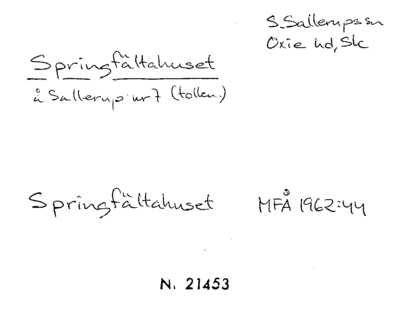 S. Sallerups sn
Oxie hd, Sk
Springfältahuset
å Sallerup nr 7 (tollen.)
Springfältahuset MFÅ 1962:44
N. 21453